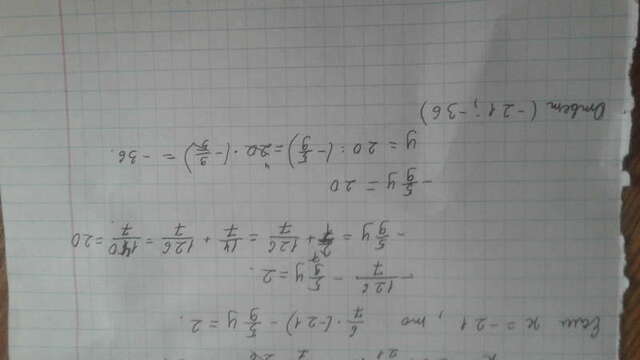 21 7 26
Если x = -21, то 6/7 · (-21) - 5/9 y = 2.
- 126/7 - 5/9 y = 2.
- 5/9 y = 2/1 + 126/7 = 14/7 + 126/7 = 140/7 = 20
- 5/9 y = 20
y = 20 : (- 5/9) = 20 · (- 9/5) = -36.
Ответ (-21; -36)